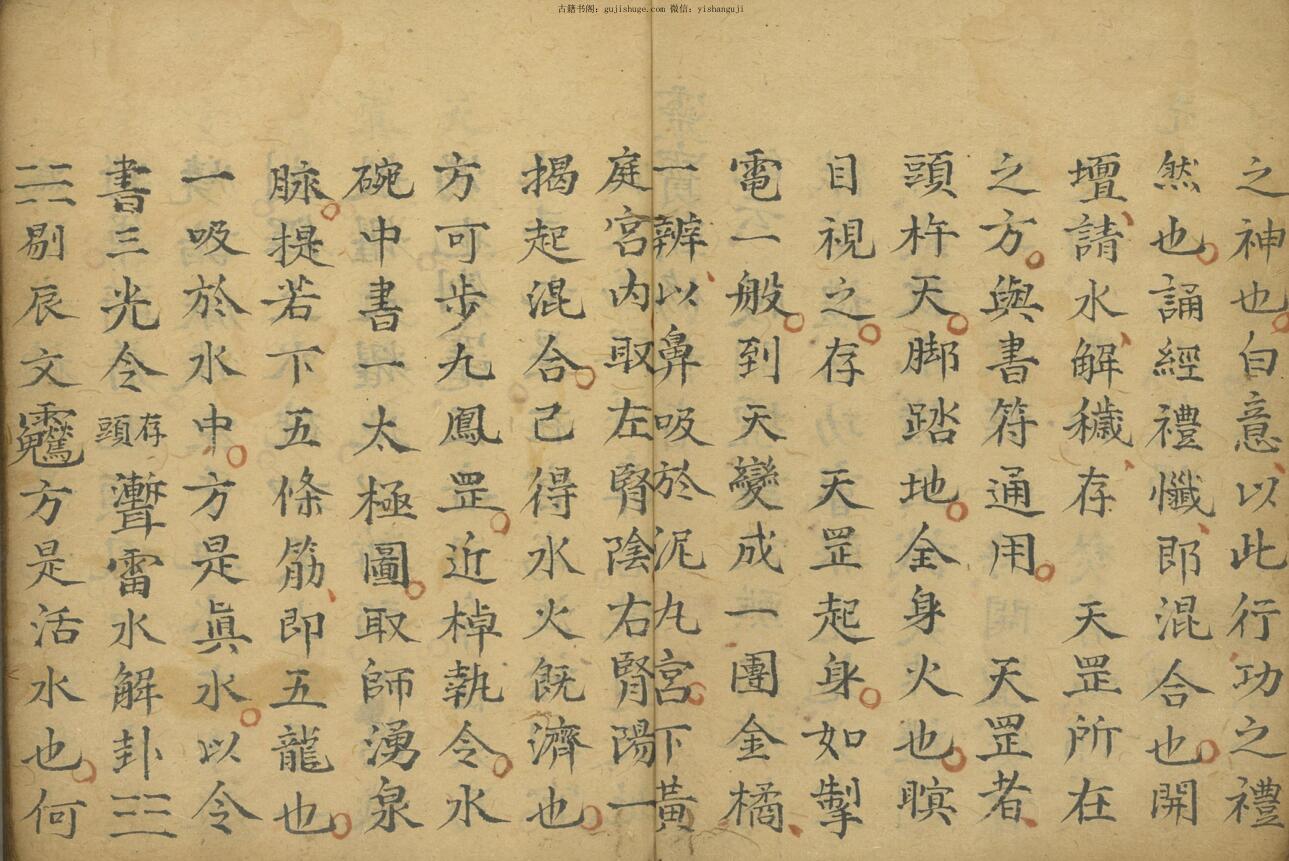 古籍书阁：gujishuge.com 微信：yishanguji
之神也。白意、以此行功之禮
然也。誦經禮懺、即混合也。開
壇、請水、解穢、存 天罡所在
之方。與書符通用。 天罡者、
頭杵天。脚踏地。全身火也。瞑
目視之。存 天罡起身。如掣
電一般。到天變成一團金橘、
一辨、以鼻吸於泥丸宮。下黃
庭宮內取左腎陰右腎陽一
揭起混合。己得水火既濟也。
方可步九鳳罡。近棹執令。水
碗中書一太極圖。取師湧泉
脉。提若下五條筋、即五龍也。
一吸於水中。方是眞水。以令
書三光令存頭雷水解卦
剔辰文方是活水也。何